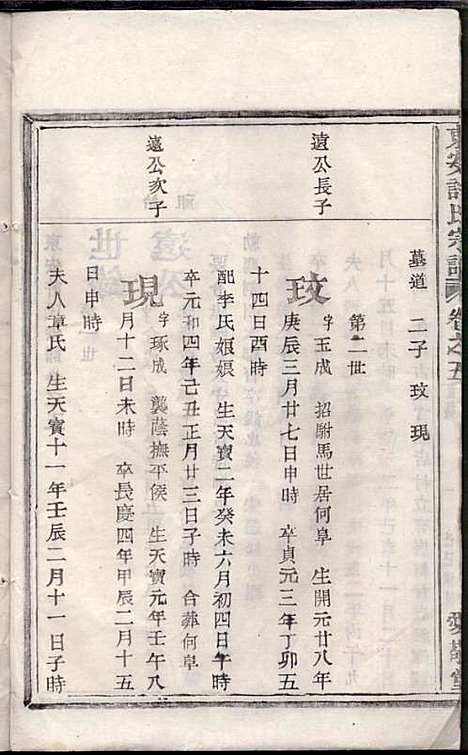 東安許氏宗譜 卷之五
愛敬堂
墓道 二子 玟 現
第二世
遠公長子
玟 字玉成 招駙馬世居何阜 生開元廿八年
庚辰三月廿七日申時 卒貞元三年丁卯五
十四日酉時
配李氏娘娘 生天寶二年癸未六月初四日午時
卒元和四年己丑正月廿三日子時 合葬何阜
遠公次子
現 字琢成 襲蔭撫平侯 生天寶元年壬午八
月十二日未時 卒長慶四年甲辰二月十五
日申時
夫人章氏 生天寶十一年壬辰二月十一日子時